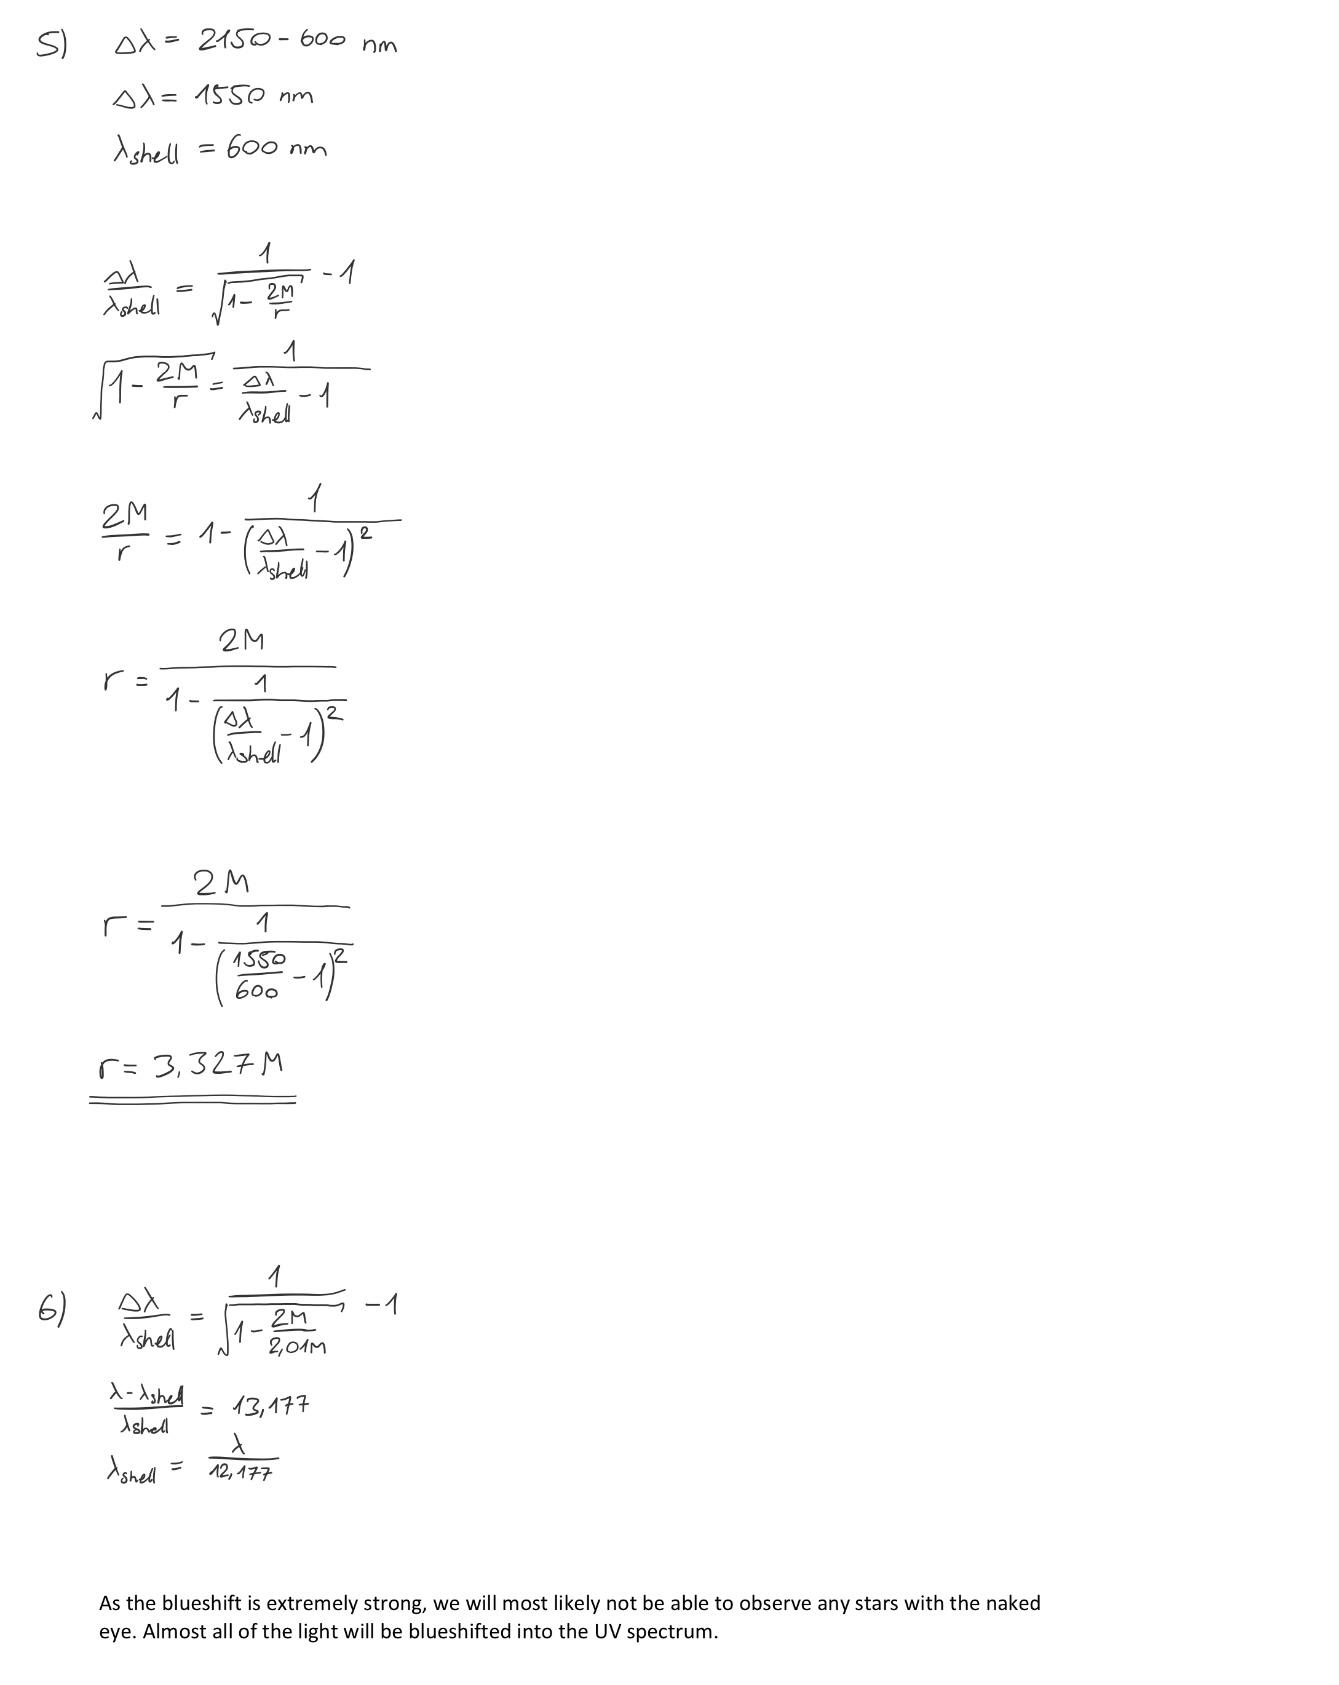 5) Δλ = 2150 - 600 nm
Δλ = 1550 nm
λshell = 600 nm
Δλ/λshell = 1/√(1 - 2M/r) - 1
√(1 - 2M/r) = 1/(Δλ/λshell - 1)
2M/r = 1 - 1/(Δλ/λshell - 1)²
r = 2M/(1 - 1/(Δλ/λshell - 1)²)
r = 2M/(1 - 1/(1550/600 - 1)²)
r = 3,327M
6) Δλ/λshell = 1/√(1 - 2M/2,01M) - 1
(λ - λshell)/λshell = 13,177
λshell = λ/12,177
As the blueshift is extremely strong, we will most likely not be able to observe any stars with the naked
eye. Almost all of the light will be blueshifted into the UV spectrum.